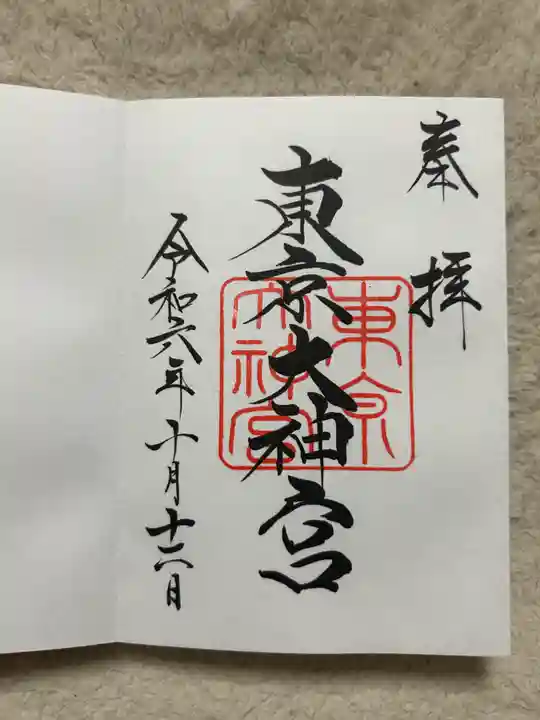 奉拝
東京大神宮
東京大神宮
令和六年十月十六日